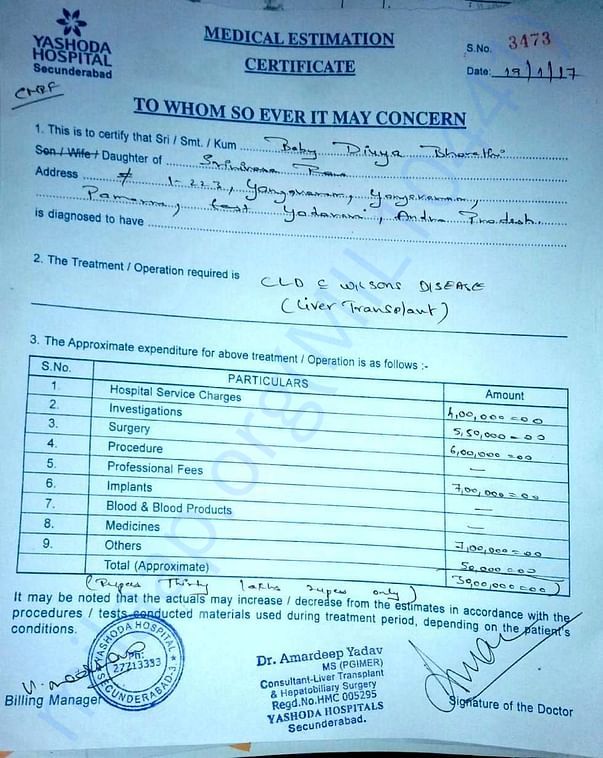 YASHODA
HOSPITAL
Secunderabad
MEDICAL ESTIMATION
CERTIFICATE
S.No. 3473
Date: 19/1/17
CMRF
TO WHOM SO EVER IT MAY CONCERN
1. This is to certify that Sri / Smt. / Kum Baby Divya Bharathi
Son / Wife / Daughter of Srinivasa Rao
Address # 1-223,
East Godavari, Andra Pradesh
is diagnosed to have
2. The Treatment / Operation required is CLD c WILSONS DISEASE
(Liver Transplant)
3. The Approximate expenditure for above treatment / Operation is as follows :-
S.No. PARTICULARS Amount
1. Hospital Service Charges 4,00,000=00
2. Investigations 5,50,000=00
3. Surgery 6,00,000=00
4. Procedure —
5. Professional Fees 7,00,000=00
6. Implants —
7. Blood & Blood Products —
8. Medicines 7,00,000=00
9. Others 50,000=00
Total (Approximate) 30,00,000=00
(Rupees Thirty lakhs rupees only)
It may be noted that the actuals may increase / decrease from the estimates in accordance with the
procedures / tests conducted materials used during treatment period, depending on the patient's
conditions.
YASHODA HOSPITAL
PH:
27713333
SECUNDERABAD-3
Billing Manager
Dr. Amardeep Yadav
MS (PGIMER)
Consultant-Liver Transplant
& Hepatobiliary Surgery
Regd.No.HMC 005295
YASHODA HOSPITALS
Secunderabad.
Signature of the Doctor